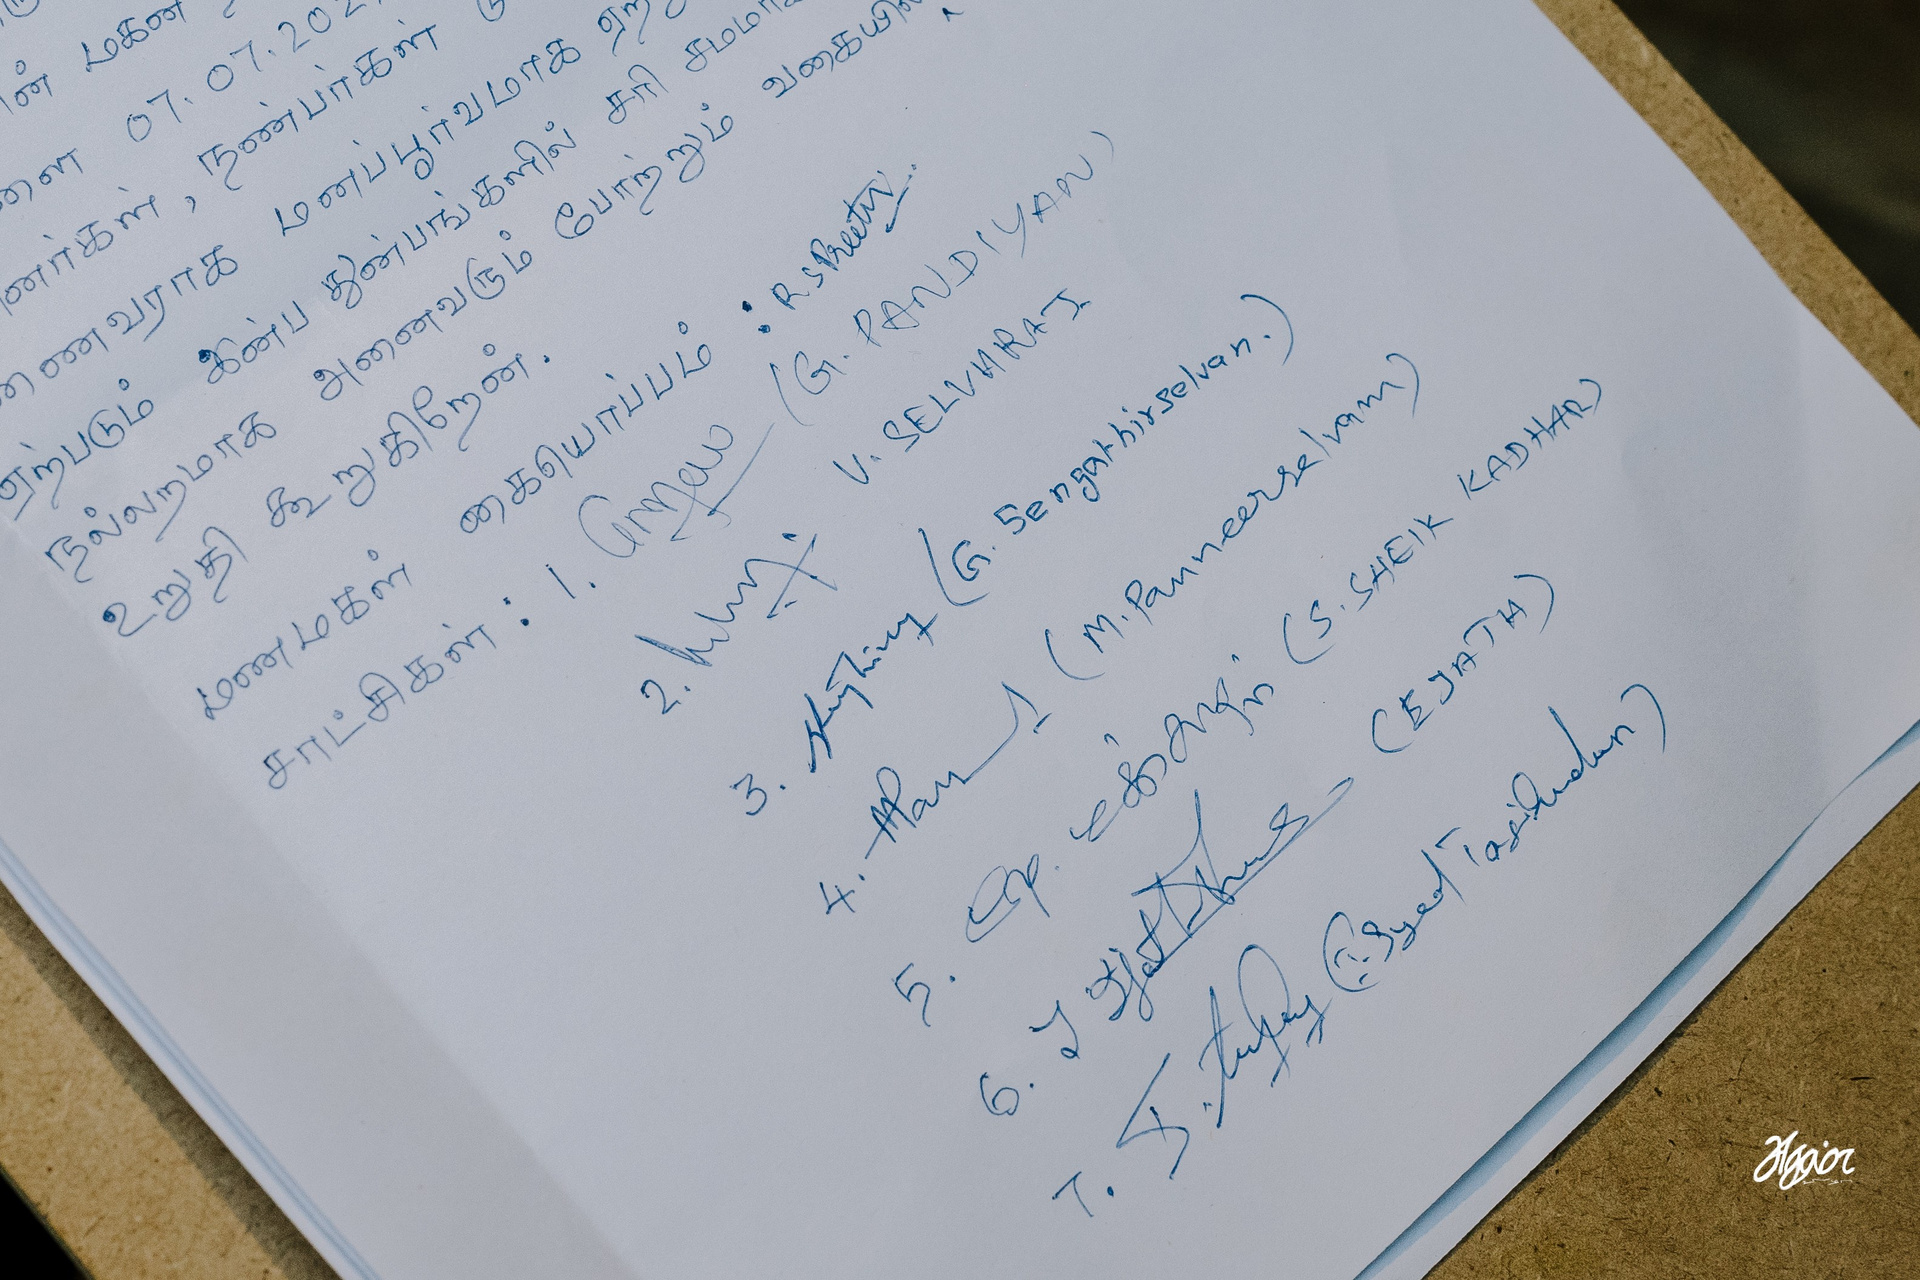 மகன்
07.07.202
னர்கள், நண்பர்கள்
மணப்பூர்வமாக ஏற்று
ஏற்படும் இன்ப துன்பங்களில் சரி சமமாக
நல்லறமாக அனைவரும் போற்றும் வகையில்
உறுதி கூறுகிறேன்.
மணமகள் கையொப்பம் : R S Preethi.
சாட்சிகள் : 1. (G. PANDIYAN)
2. V. SELVARAJ
3. (G. Sengathirselvan.)
4. (M. Panneerselvam)
5. (S. SHEIK KADHAR)
6. (EJATH)
7. Syed Tasiludeen)